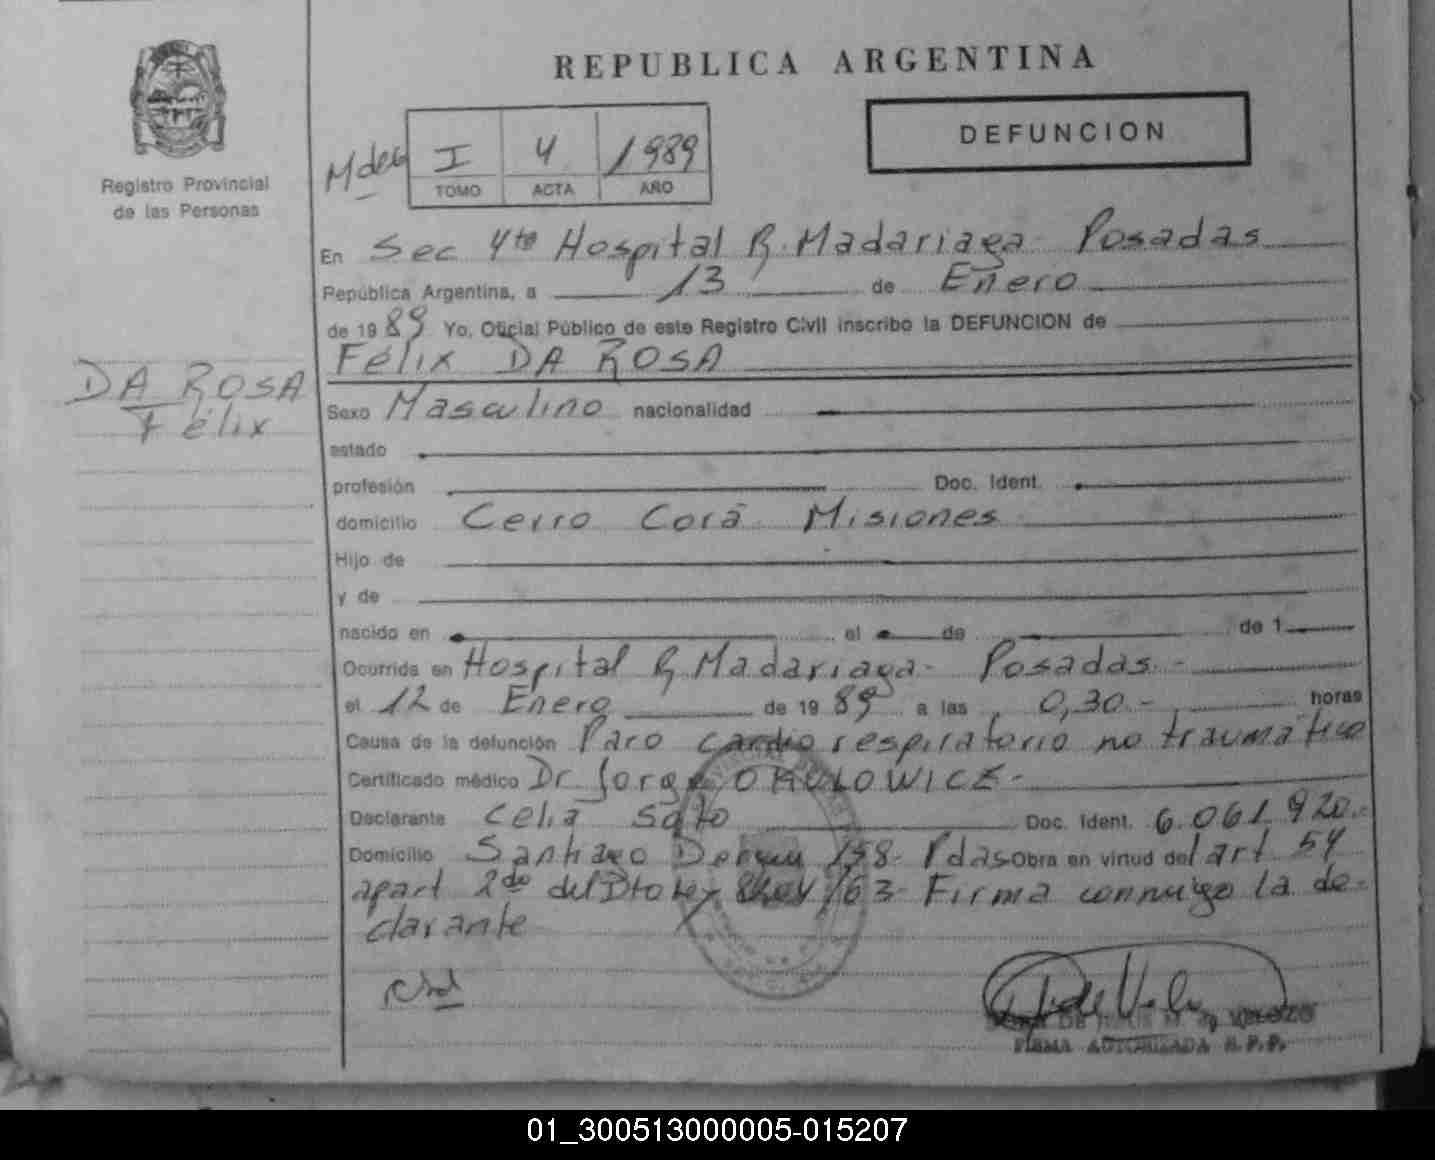 REPUBLICA ARGENTINA
DEFUNCION
Registro Provincial
de las Personas
I 4 1989
TOMO ACTA AÑO
En Sec 4ta Hospital R. Madariaga - Posadas
República Argentina, a 13 de Enero
de 1989 Yo, Oficial Público de este Registro Civil inscribo la DEFUNCION de
Félix DA ROSA
DA ROSA
Félix
Sexo Masculino nacionalidad
estado
profesión Doc. Ident.
domicilio Cerro Corá Misiones
Hijo de
y de
nacido en el de de 1
Ocurrida en Hospital R. Madariaga - Posadas -
el 12 de Enero de 1989 a las 0,30 - horas
Causa de la defunción Paro cardio respiratorio no traumático
Certificado médico Dr Jorge OKULOWICZ -
Declarante Celia Soto Doc. Ident. 6.061.920.-
Domicilio Santiago Derqui 158 - Pdas Obra en virtud del art 54
apart 2do del Dto ley 163 - Firma conmigo la de-
clarante
VELOZO
FIRMA AUTORIZADA R.P.P.
01_300513000005-015207